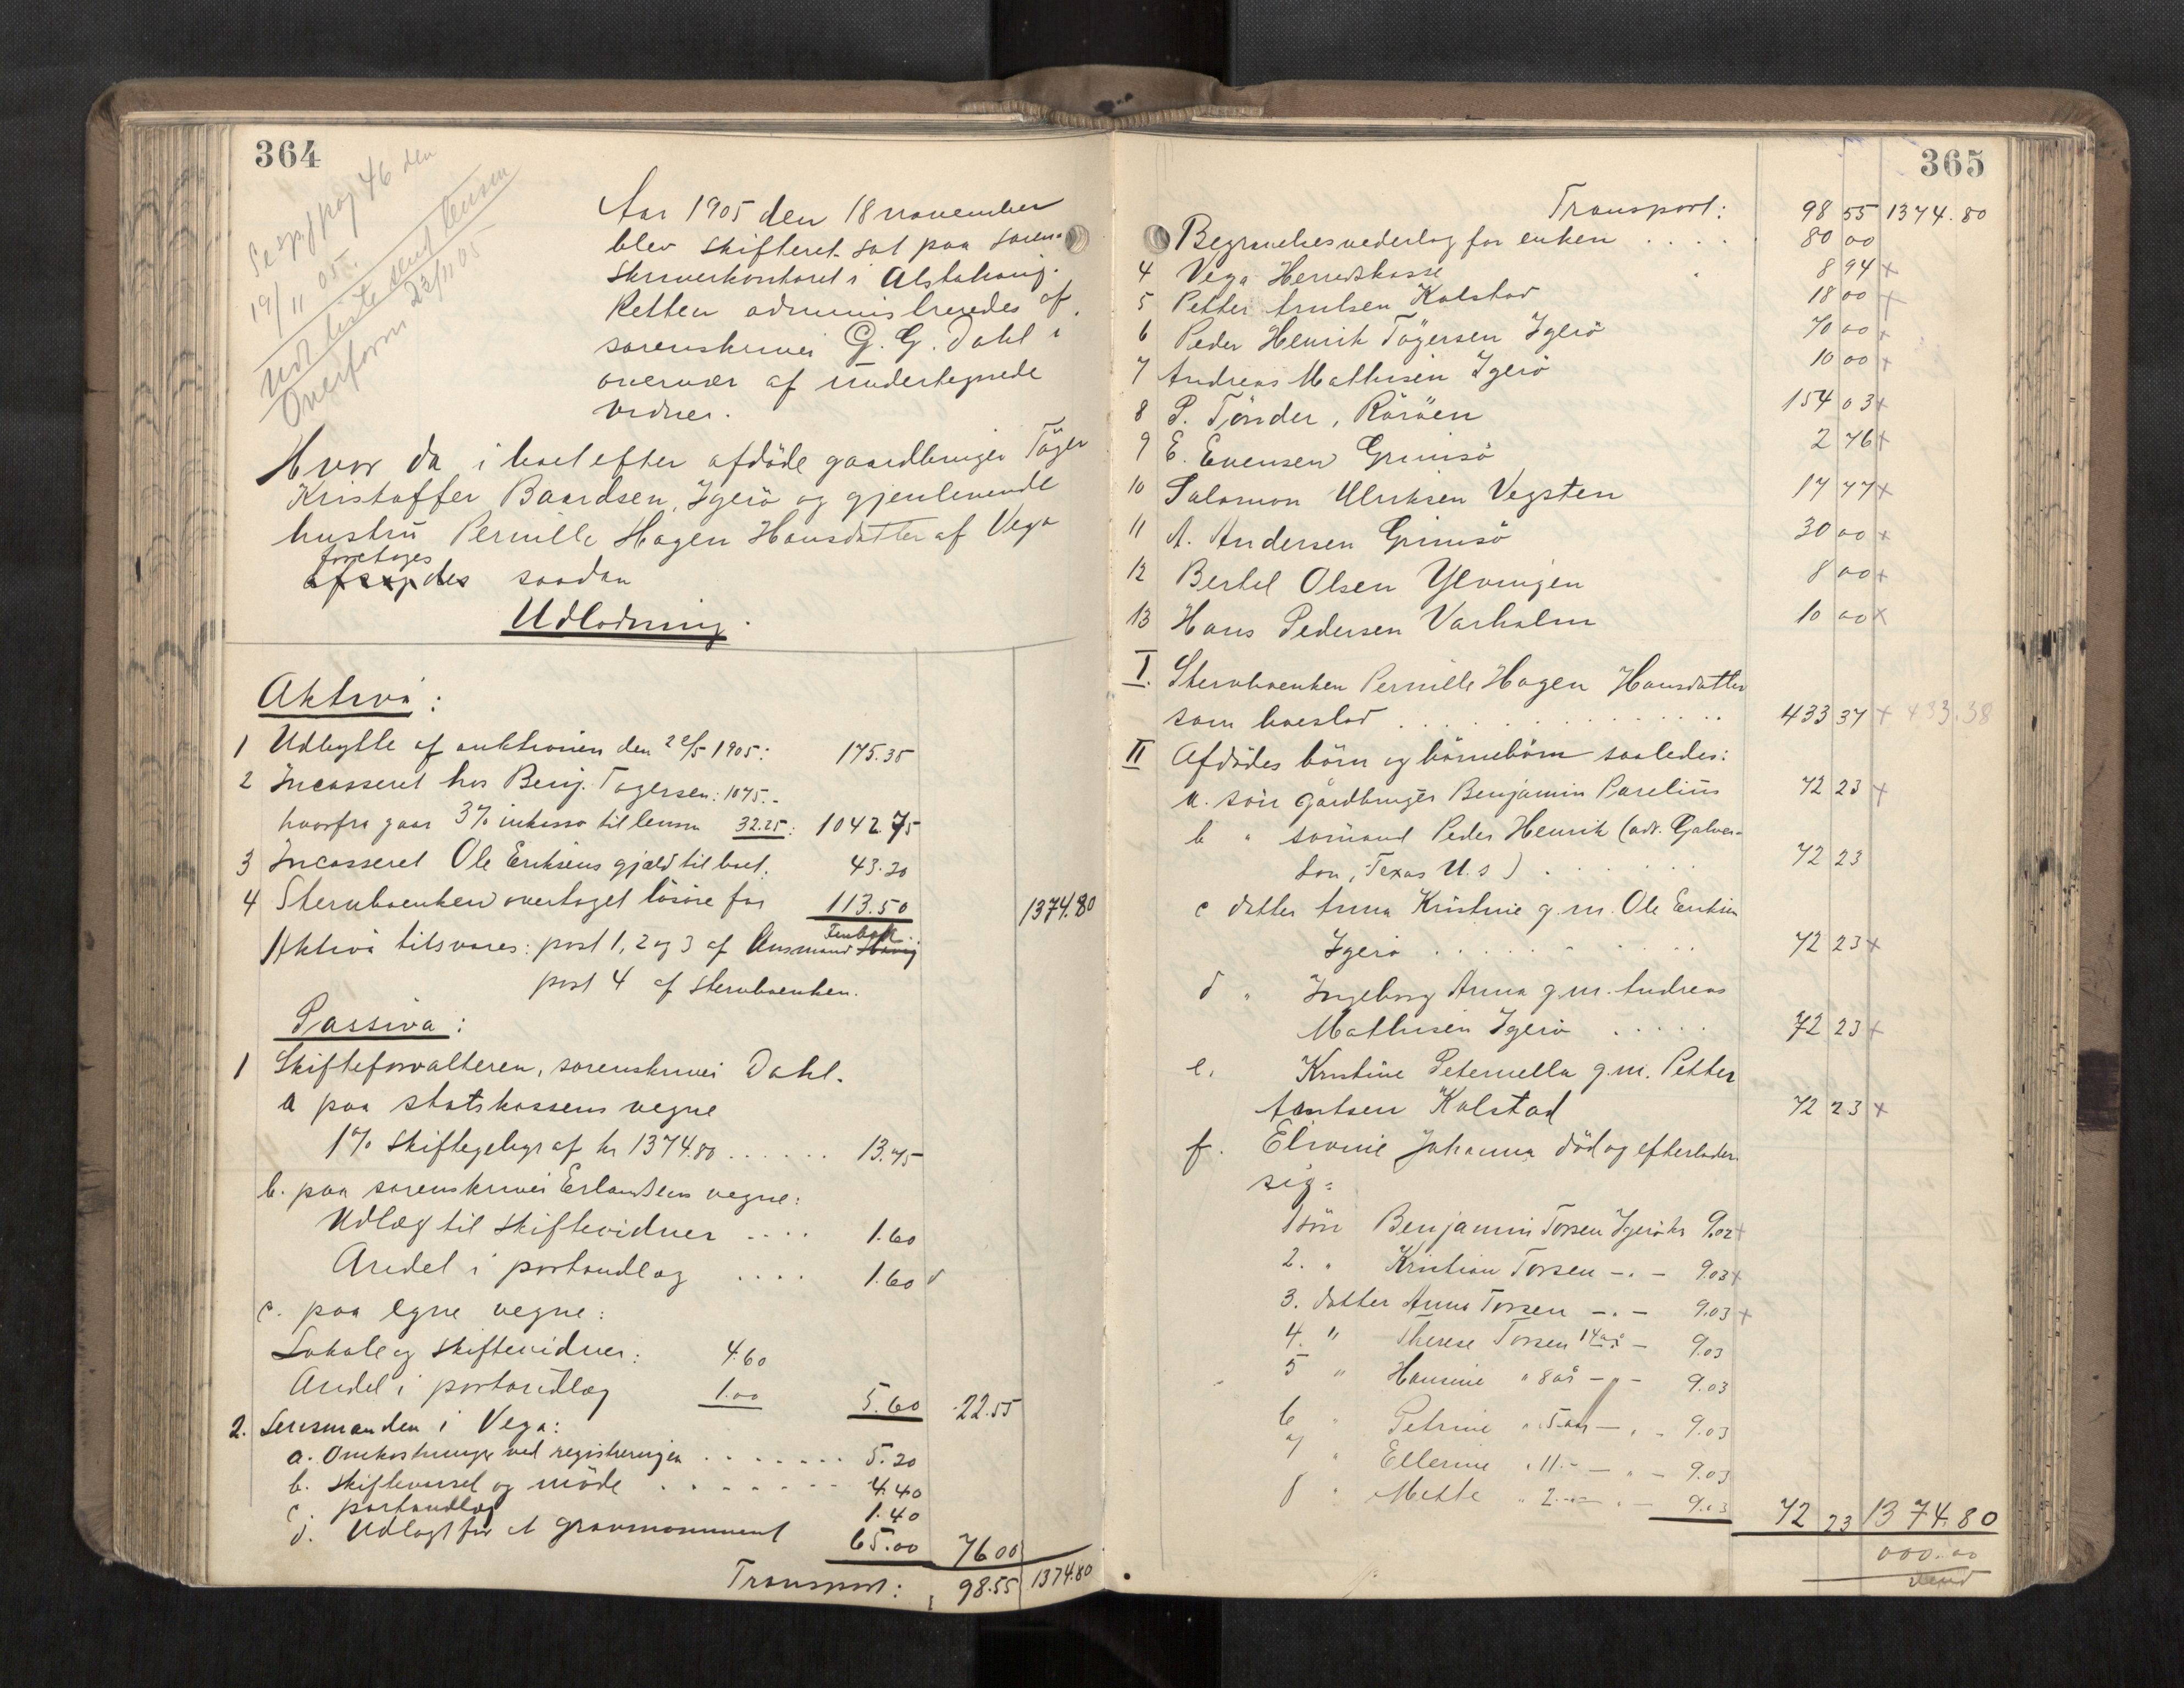 364
Se pag 46 den
19/11 05.
Udt liste send lensm
Overform 23/11 05
Aar 1905 den 18 november
blev skifteret sat paa soren-
skriverkontoret i Alstahaug.
Retten administreredes af
sorenskriver G. G. Dahl i
overvær af undertegnede
vidner.
Hvor da i boet efter afdöde gaardbruger Töger
Kristoffer Baardsen, Igerö og gjenlevende
hustru Pernille Hagen Hansdatter af Vega
foretoges
afsagdes saadan
Udlodning.
Aktiva:
1 Udbytte af auktionen den 22/5 1905: 175.35
2 Incasseret hos Benj. Tögersen: 1075.-
hvorfra gaar 3% inkasso til lensm 32.25: 1042.75
3 Incasseret Ole Eriksens gjæld til boet. 43.20
4 Stervboenken overtaget lösöre for 113.50 1374.80
Aktiva tilsvares: post 1, 2 og 3 af lensmand
post 4 af stervboenken.
Passiva:
1 Skifteforvalteren, sorenskriver Dahl.
a paa statskassens vegne
1% skiftegebyr af kr 1374.80 ...... 13.75
b. paa sorenskriver Erlandsens vegne:
Udlæg til skiftevidner .... 1.60
Andel i portoudlæg .... 1.60
c. paa egne vegne:
Lokale og skiftevidner: 4.60
Andel i portoudlæg 1.00 5.60 22.55
2. Lensmanden i Vega:
a. Omkostninger ved registreringen ....... 5.20
b. skiftevarsel og möde ....... 4.40
c. portoudlæg 1.40
d. Udlagt for et gravmonument 65.00 76 00
Transport: 98.55 1374.80
365
Transport: 98 55 1374.80
Begravelsesvederlag for enken .... 80 00
4 Vega Herredskasse 8 94 +
5 Petter Arntsen Kalstad 18 00 +
6 Peder Henrik Tögersen Igerö 70 00 +
7 Andreas Mathisen Igerö 10 00 +
8 P. Tönder, Röröen 154 03 +
9 E. Evensen Grimsö 2 76 +
10 Salamon Ulriksen Vegsten 17 77 +
11 A. Andersen Grimsö 30 00 +
12 Bertel Olsen Ylvingen 8 00 +
13 Hans Pedersen Varholm 10 00 X
I. Stervboenken Pernille Hagen Hansdatter
som boeslod ............... 433 37 + 433.38
II Afdödes börn og börnebörn saaledes:
a. sön gårdbruger Benjamin Parelius 72 23 +
b " sömand Peder Henrik (adr. Galves-
ton, Texas U.s) ....... 72 23
c datter Anna Kristine g.m. Ole Eriksen
Igerö ........ 72 23 +
d " Ingeborg Anna g.m. Andreas
Mathisen Igerö ..... 72 23 +
e. Kristine Peternella g.m. Petter
Arntsen Kalstad 72 23 +
f. Elvonie Johanna död og efterlader
sig:
1 sön Benjamin Torsen Igerö kr 9.02 +
2. " Kristian Torsen -.- 9.03 +
3. datter Anna Torsen -.- 9.03 +
4. " Therese Torsen 14 år - 9.03
5 " Hansine " 8 år -"- 9.03
6 " Petrine " 5 år -"- 9.03
7 " Ellerine " 11.- -"- 9.03
8 " Mette " 2.- -"- 9.03 72 23 1374.80
000.00